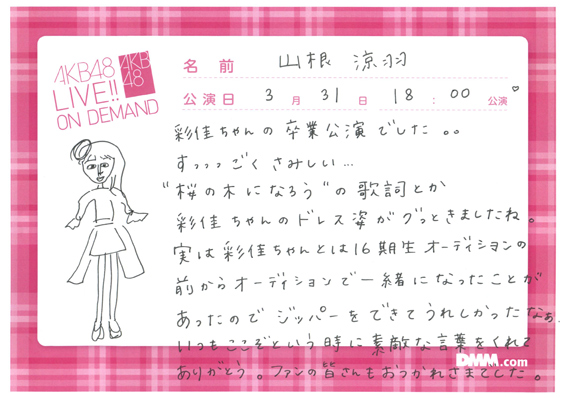 AKB48
LIVE!!
ON DEMAND
AKB
48
名前 山根 涼羽
公演日 3月31日 18:00公演♡
彩佳ちゃんの卒業公演でした。。
すっっっごくさみしい…
"桜の木になろう"の歌詞とか
彩佳ちゃんのドレス姿がグっときましたね。
実は彩佳ちゃんとは16期生オーディションの
前からオーディションで一緒になったことが
あったのでジッパーをできてうれしかったなぁ。
いつもここぞという時に素敵な言葉をくれて
ありがとう。ファンの皆さんもおつかれさまでした。
DMM.com